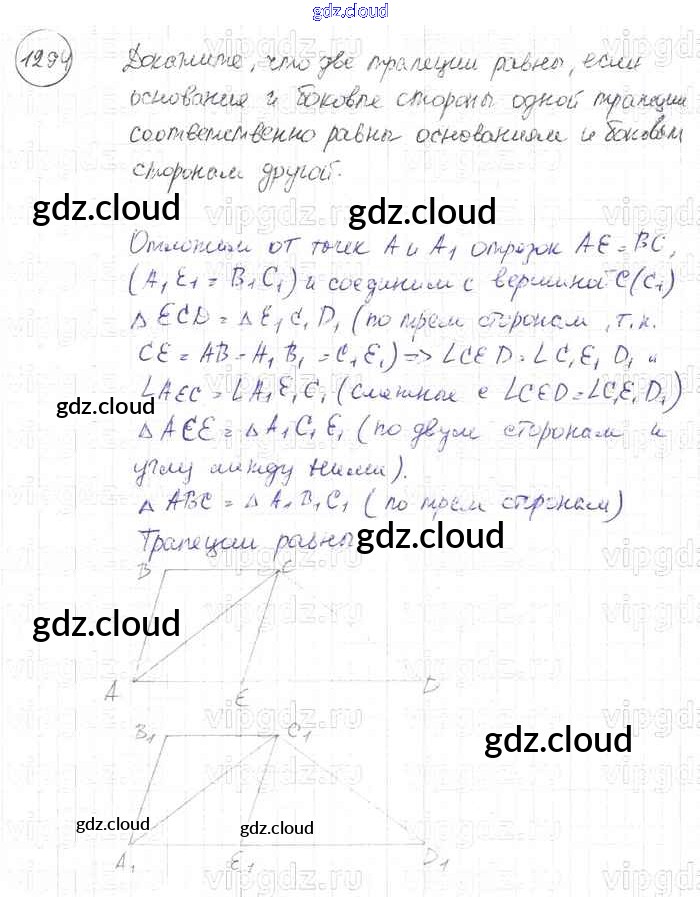 gdz.cloud
1294 Докажите, что две трапеции равны, если
основания и боковые стороны одной трапеции
соответственно равны основаниям и боковым
сторонам другой.
gdz.cloud gdz.cloud
Отложим от точек A и A₁ отрезок AE = BC,
(A₁E₁ = B₁C₁) и соединим с вершиной C(C₁)
△ ECD = △ E₁C₁D₁ (по трем сторонам, т.к.
CE = AB = A₁B₁ = C₁E₁) => ∠CED = ∠C₁E₁D₁ и
∠AEC = ∠A₁E₁C₁ (смежные с ∠CED = ∠C₁E₁D₁)
gdz.cloud
△ ACE = △ A₁C₁E₁ (по двум сторонам и
углу между ними).
△ ABC = △ A₁B₁C₁ (по трем сторонам)
Трапеции равны
gdz.cloud
B C
gdz.cloud
A E D
B₁ C₁
gdz.cloud
gdz.cloud gdz.cloud
A₁ E₁ D₁
vipgdz.ru